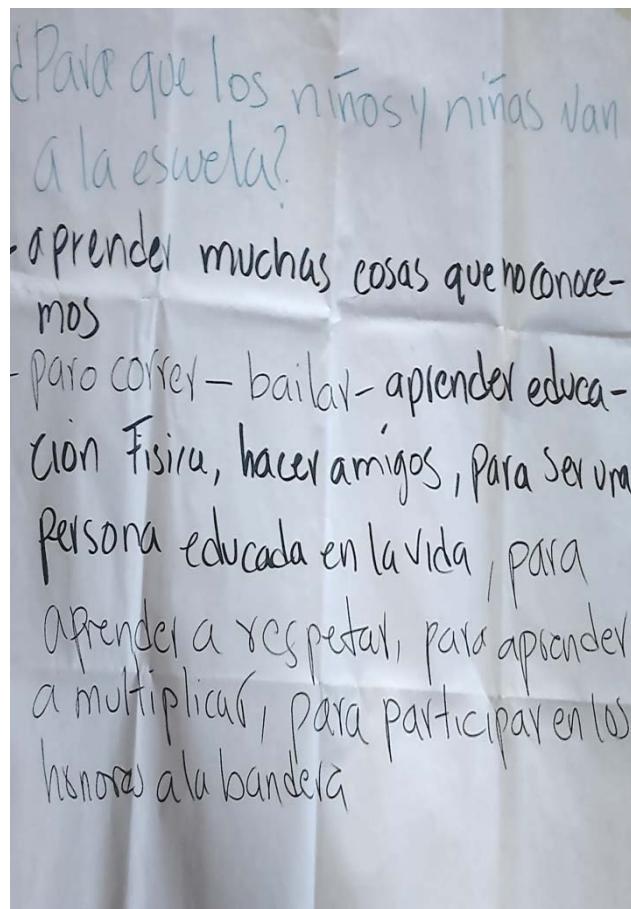 ¿Para que los niños y niñas van
a la escuela?
- aprender muchas cosas que no conoce-
mos
- para correr - bailar - aprender educa-
ción Fisica, hacer amigos, para ser una
persona educada en la vida, para
aprender a respetar, para aprender
a multiplicar, para participar en los
honores a la bandera